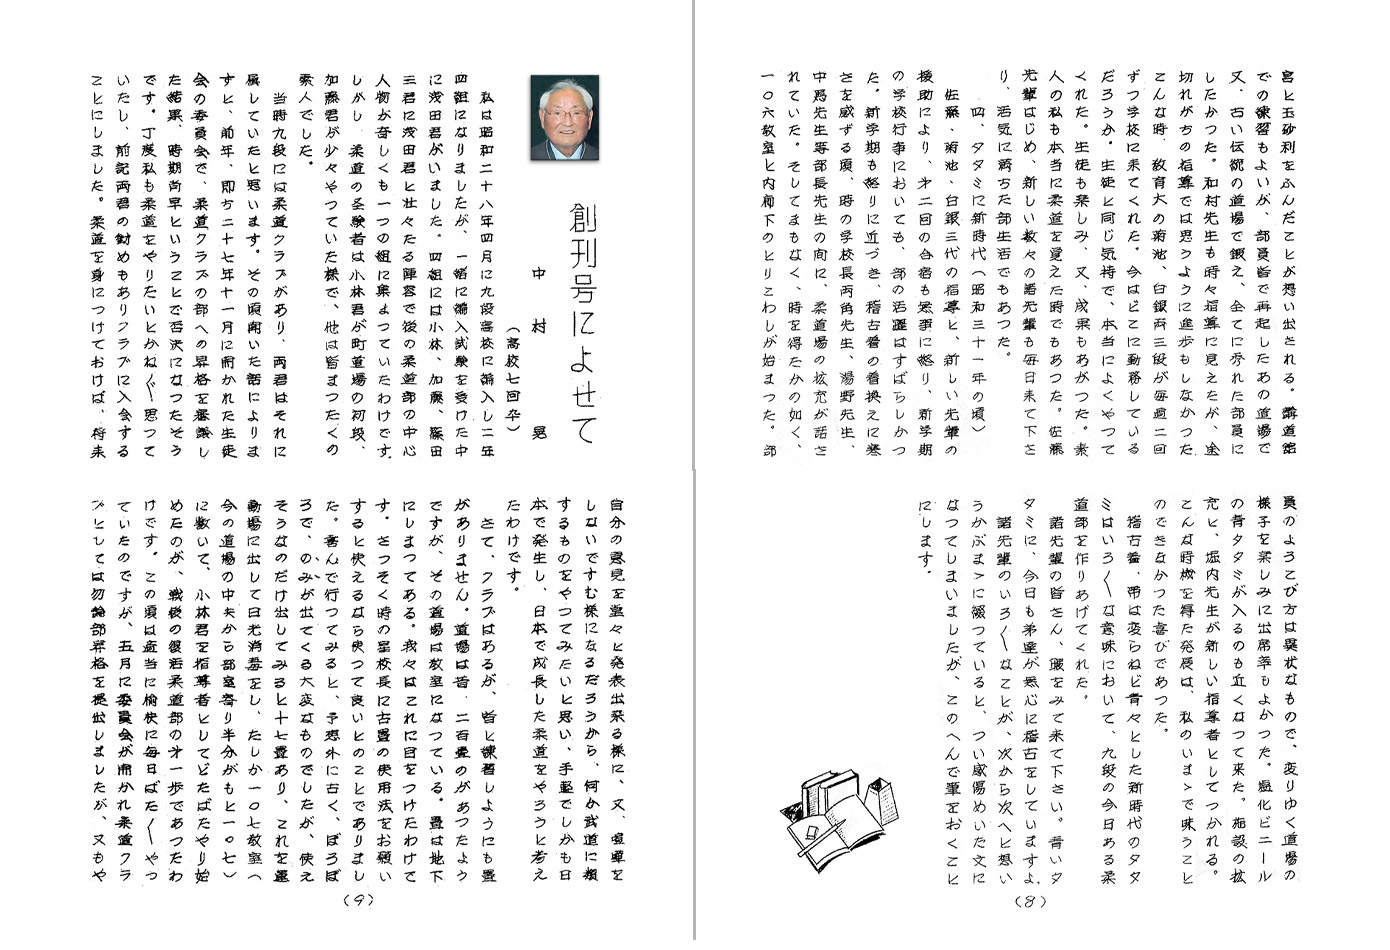 宮と玉砂利をふんだことが想い出される。講道館
での練習もよいが、部員皆で再起したあの道場で
又、古い伝統の道場で鍛え、全てに秀れた部員に
したかった。和村先生も時々指導に見えたが、途
切れがちの指導では思うように進歩もしなかった
こんな時、教育大の菊池、白銀両三段が毎週二回
ずつ学校に来てくれた。今はどこに勤務している
だろうか。生徒と同じ気持で、本当によくやって
くれた。生徒も楽しみ、又、成果もあがった。素
人の私も本当に柔道を覚えた時でもあった。佐藤
先輩はじめ、新しい数々の諸先輩も毎日来て下さ
り、活気に満ちた部生活でもあった。
四、タタミに新時代(昭和三十一年の頃)
佐藤・菊池・白銀三代の指導と、新しい先輩の
援助により、才二回の合宿も無事に終り、新学期
の学校行事においても、部の活躍はすばらしかっ
た。新学期も終りに近づき、稽古着の着換えに寒
さを感ずる頃、時の学校長両角先生、湯野先生、
中馬先生等部長先生の向に、柔道場の拡充が話さ
れていた。そしてまもなく、時を得たかの如く、
一〇六教室と内廊下のとりこわしが始まった。部
員のよろこび方は異状なもので、変りゆく道場の
様子を楽しみに出席率もよかった。塩化ビニール
の青タタミが入るのも近くなって来た。施設の拡
充と、堀内先生が新しい指導者としてつかれる。
こんな時機を得た発展は、私のいまゝで味うこと
のできなかった喜びであった。
稽古着、帯は変らねど青々とした新時代のタタ
ミはいろ〳〵な意味において、九段の今日ある柔
道部を作りあげてくれた。
諸先輩の皆さん、暇をみて来て下さい。青いタ
タミに、今日も弟達が熱心に稽古をしていますよ。
諸先輩のいろ〳〵なことが、次から次へと想い
うかぶまゝに綴っていると、つい感傷めいた文に
なってしまいましたが、このへんで筆をおくこと
にします。
(8)
創刊号によせて
中村晃
(高校七回卒)
私は昭和二十八年四月に九段高校に編入し二年
四組になりましたが、一緒に編入試験を受けた中
に浅田君がいました。四組には小林、加藤、篠田
三君に浅田君と壮々たる陣容で後の柔道部の中心
人物が奇しくも一つの組に集まっていたわけです。
しかし、柔道の経験者は小林君が町道場の初段、
加藤君が少々やっていた様で、他は皆まったくの
素人でした。
当時九段には柔道クラブがあり、両君はそれに
属していたと思います。その頃聞いた話によりま
すと、前年、即ち二十七年十一月に開かれた生徒
会の委員会で、柔道クラブの部への昇格を審議し
た結果、時期尚早ということで否決になったそう
です。丁度私も柔道をやりたいとかね〴〵思って
いたし、前記両君の勧めもありクラブに入会する
ことにしました。柔道を身につけておけば、将来
自分の意見を堂々と発表出来る様に、又、喧嘩を
しないですむ様になるだろうから、何か武道に類
するものをやってみたいと思い、手軽でしかも日
本で発生し、日本で成長した柔道をやろうと考え
たわけです。
さて、クラブはあるが、皆と練習しようにも畳
がありません。道場は昔、二百畳のがあったよう
ですが、その道場は教室になっている。畳は地下
にしまってある。我々はこれに目をつけたわけで
す。さっそく時の星校長に古畳の使用法をお願い
すると使えるなら使って良いとのことでありまし
た。喜んで行ってみると、予想外に古く、ぼろぼ
ろで、のみが出てくる大変なものでしたが、使え
そうなのだけ出してみると十七畳あり、これを運
動場に出して日光消毒をし、たしか一〇七教室(
今の道場の中央から部室寄り半分がもと一〇七)
に敷いて、小林君を指導者としてどたばたやり始
めたのが、戦後の復活柔道部の才一歩であったわ
けです。この頃は適当に愉快に毎日ばた〳〵やっ
ていたのですが、五月に委員会が開かれ柔道クラ
ブとしては勿論部昇格を提出しましたが、又もや
(9)